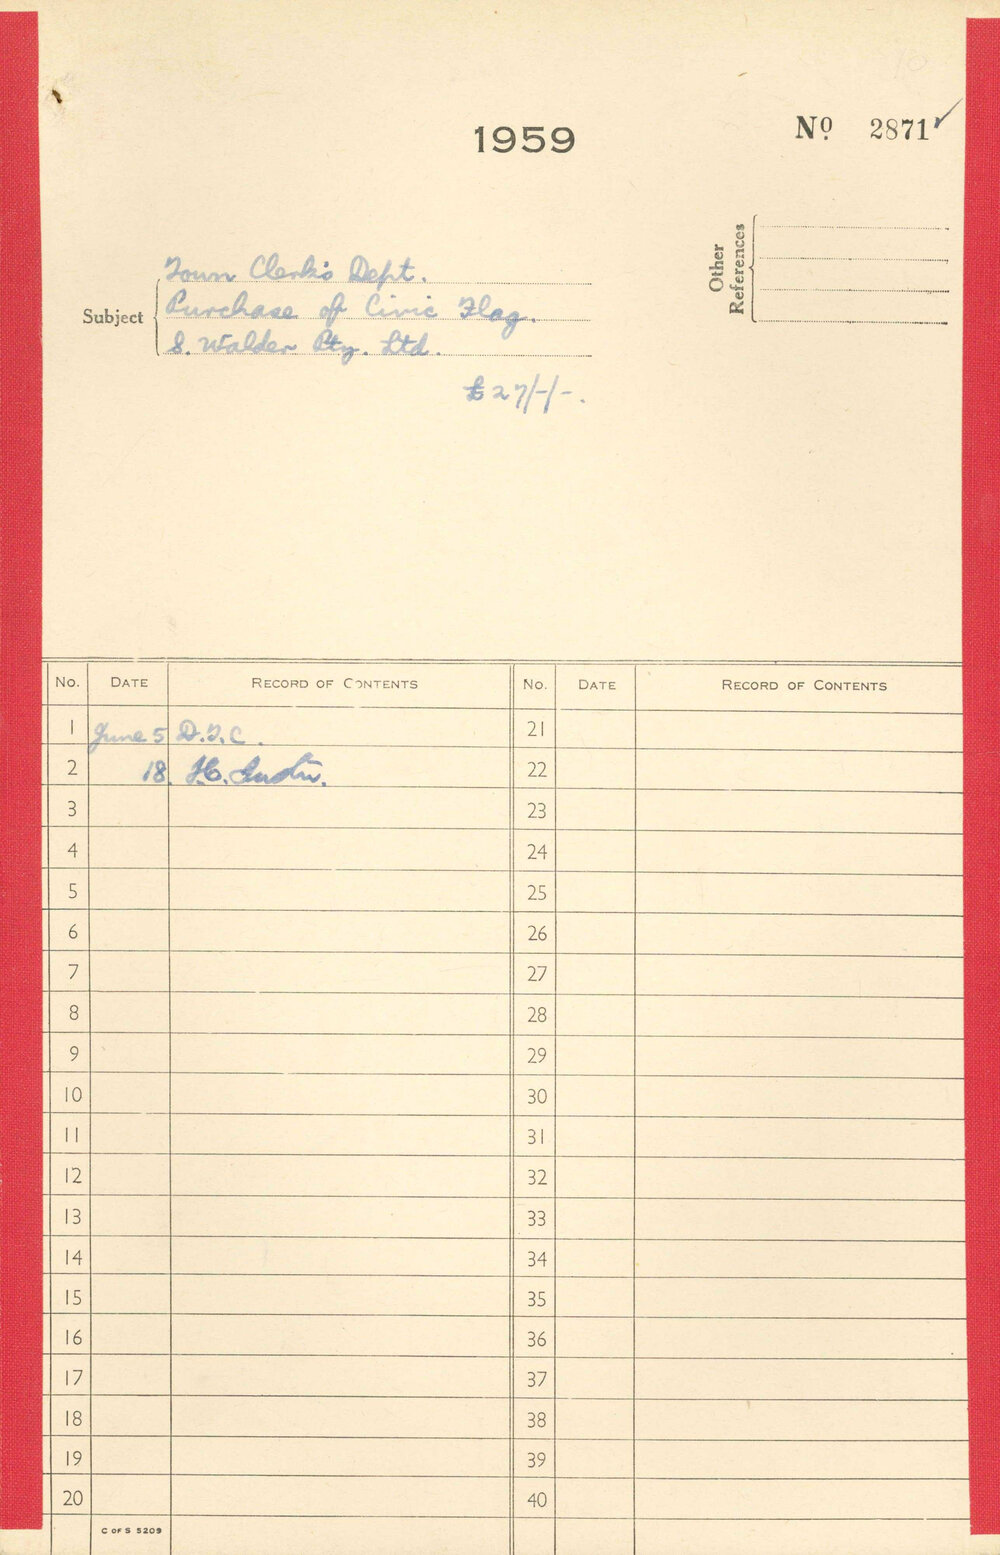 1959
No 2871
Other
References
Subject
Town Clerk's Dept.
Purchase of Civic Flag.
S. Walder Pty. Ltd.
£27/-/-.
No. DATE RECORD OF CONTENTS No. DATE RECORD OF CONTENTS
1 June 5 D.T.C. 21
2 18. H. 22
3 23
4 24
5 25
6 26
7 27
8 28
9 29
10 30
11 31
12 32
13 33
14 34
15 35
16 36
17 37
18 38
19 39
20 40
C OF S 5209